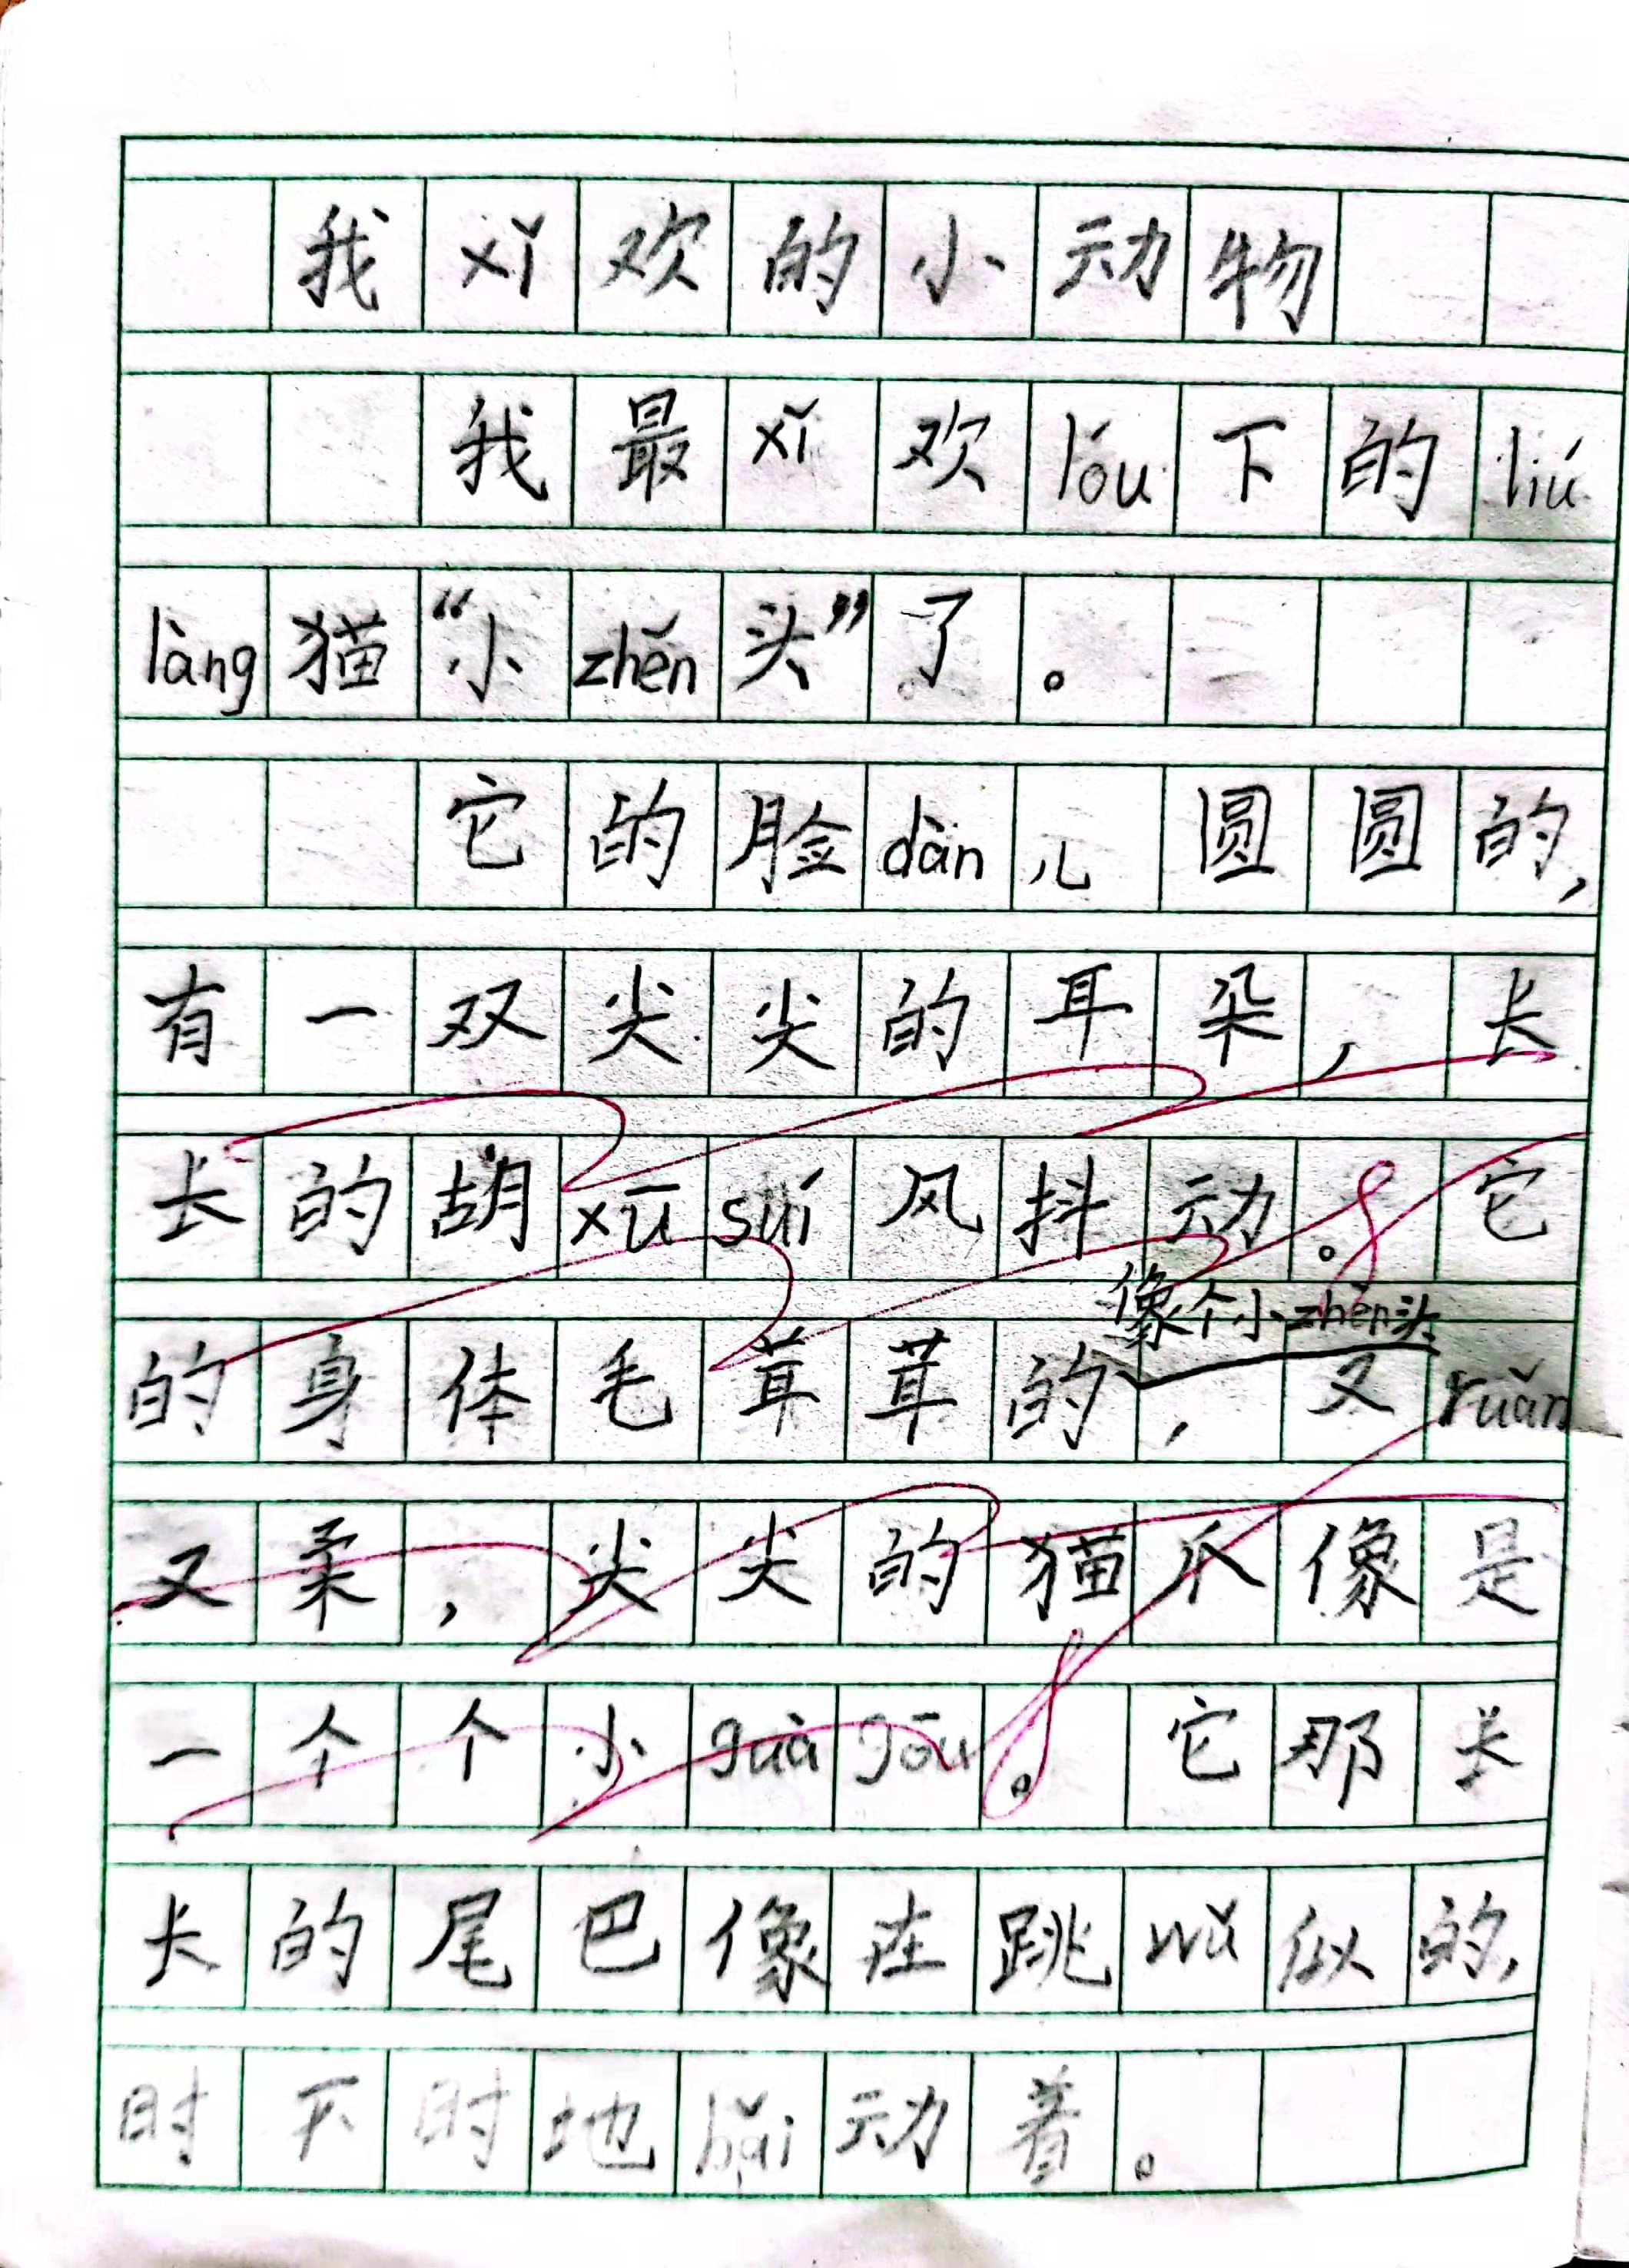 我xǐ欢的小动物
我最xǐ欢lóu下的liú
làng猫“小zhěn头”了。
它的脸dàn儿圆圆的,
有一双尖尖的耳朵,长
长的胡xūsuí风抖动。它
像个小zhěn头
的身体毛茸茸的,又ruǎn
又柔,尖尖的猫爪像是
一个个小guàgōu。它那长
长的尾巴像在跳wǔ似的,
时不时地bǎi动着。